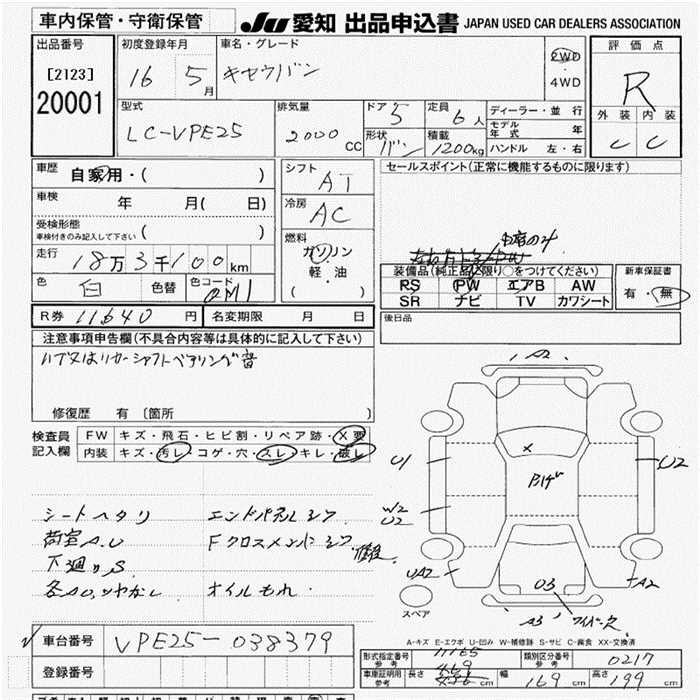 車内保管・守衛保管
JU 愛知 出品申込書 JAPAN USED CAR DEALERS ASSOCIATION
出品番号
[2123]
20001
初度登録年月
16 5月
車名・グレード
キャラバン
2WD
・
4WD
評価点
R
外装 内装
C C
型式
LC-VPE25
排気量
2000 cc
ドア 5
形状 バン
定員 6人
積載 1200kg
ディーラー・並行
モデル年式 年
ハンドル 左・右
車歴
自家用・( )
車検
年 月( 日)
受検形態
車検付きのみ記入して下さい ( )
走行
18万3千100km
色 白 色替 色コード QM1
シフト
AT
冷房
AC
燃料
ガソリン
軽・油
( )
セールスポイント(正常に機能するものに限ります)
装備品(純正品に限り○をつけてください)
PS PW エアB AW
SR ナビ TV カワシート
新車保証書
有・無
R券 11640円 名変期限 月 日
後日品
注意事項申告欄(不具合内容等は具体的に記入して下さい)
ハブ又はリヤーシャフトベアリング音
修復歴 有 〔箇所 〕
検査員記入欄
FW キズ・飛石・ヒビ割・リペア跡・X要
内装 キズ・汚レ・コゲ・穴・スレ・キレ・破レ
シートヘタリ
荷室A.U
下廻りS
エンドパネルシワ
Fクロスメンバーシワ
オイルもれ
A2
U1
U2
W2
U2
UA2
A2
スペア
A-キズ E-エクボ U-凹み W-補修跡 S-サビ C-腐食 XX-交換済
車台番号 VPE25-038379
登録番号
形式指定番号 参考 11165
類別区分番号 参考 0217
車庫証明用 参考 長さ 469 cm 幅 169 cm 高さ 199 cm